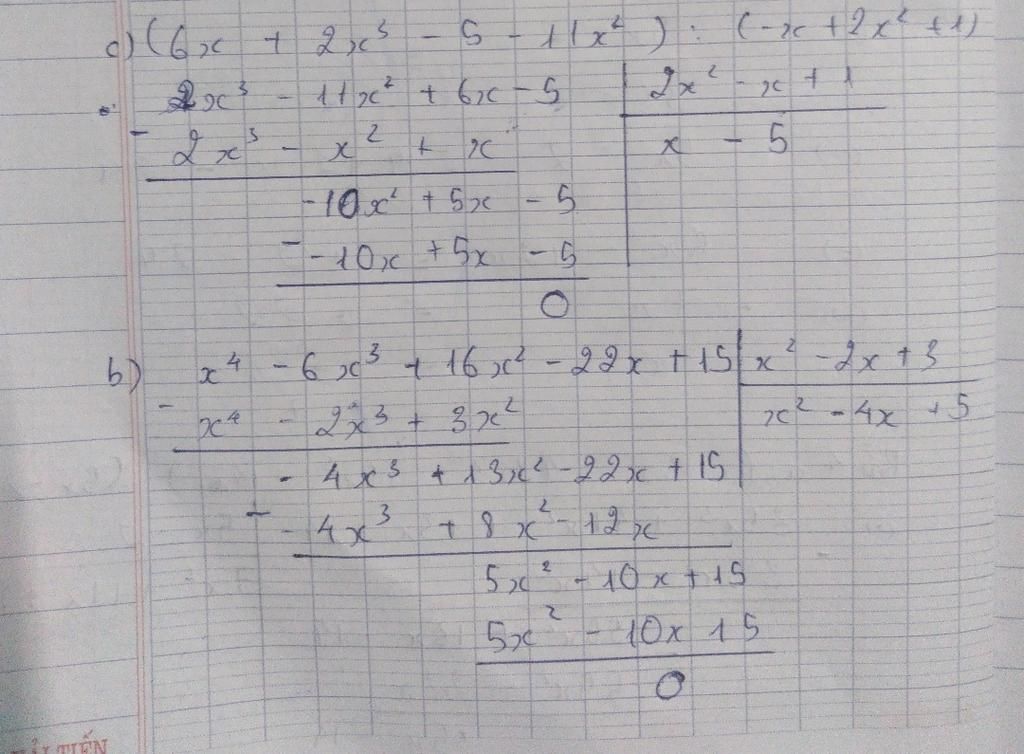 c) (6x + 2x³ - 5 - 11x²) : (-x + 2x² + 1)
2x³ - 11x² + 6x - 5 | 2x² - x + 1
- 2x³ - x² + x | x - 5
-10x² + 5x - 5
- -10x + 5x - 5
0
b) x⁴ - 6x³ + 16x² - 22x + 15 | x² - 2x + 3
- x⁴ - 2x³ + 3x² | x² - 4x + 5
- 4x³ + 13x² - 22x + 15
- - 4x³ + 8x² - 12x
5x² - 10x + 15
5x² - 10x 15
0
TIẾN